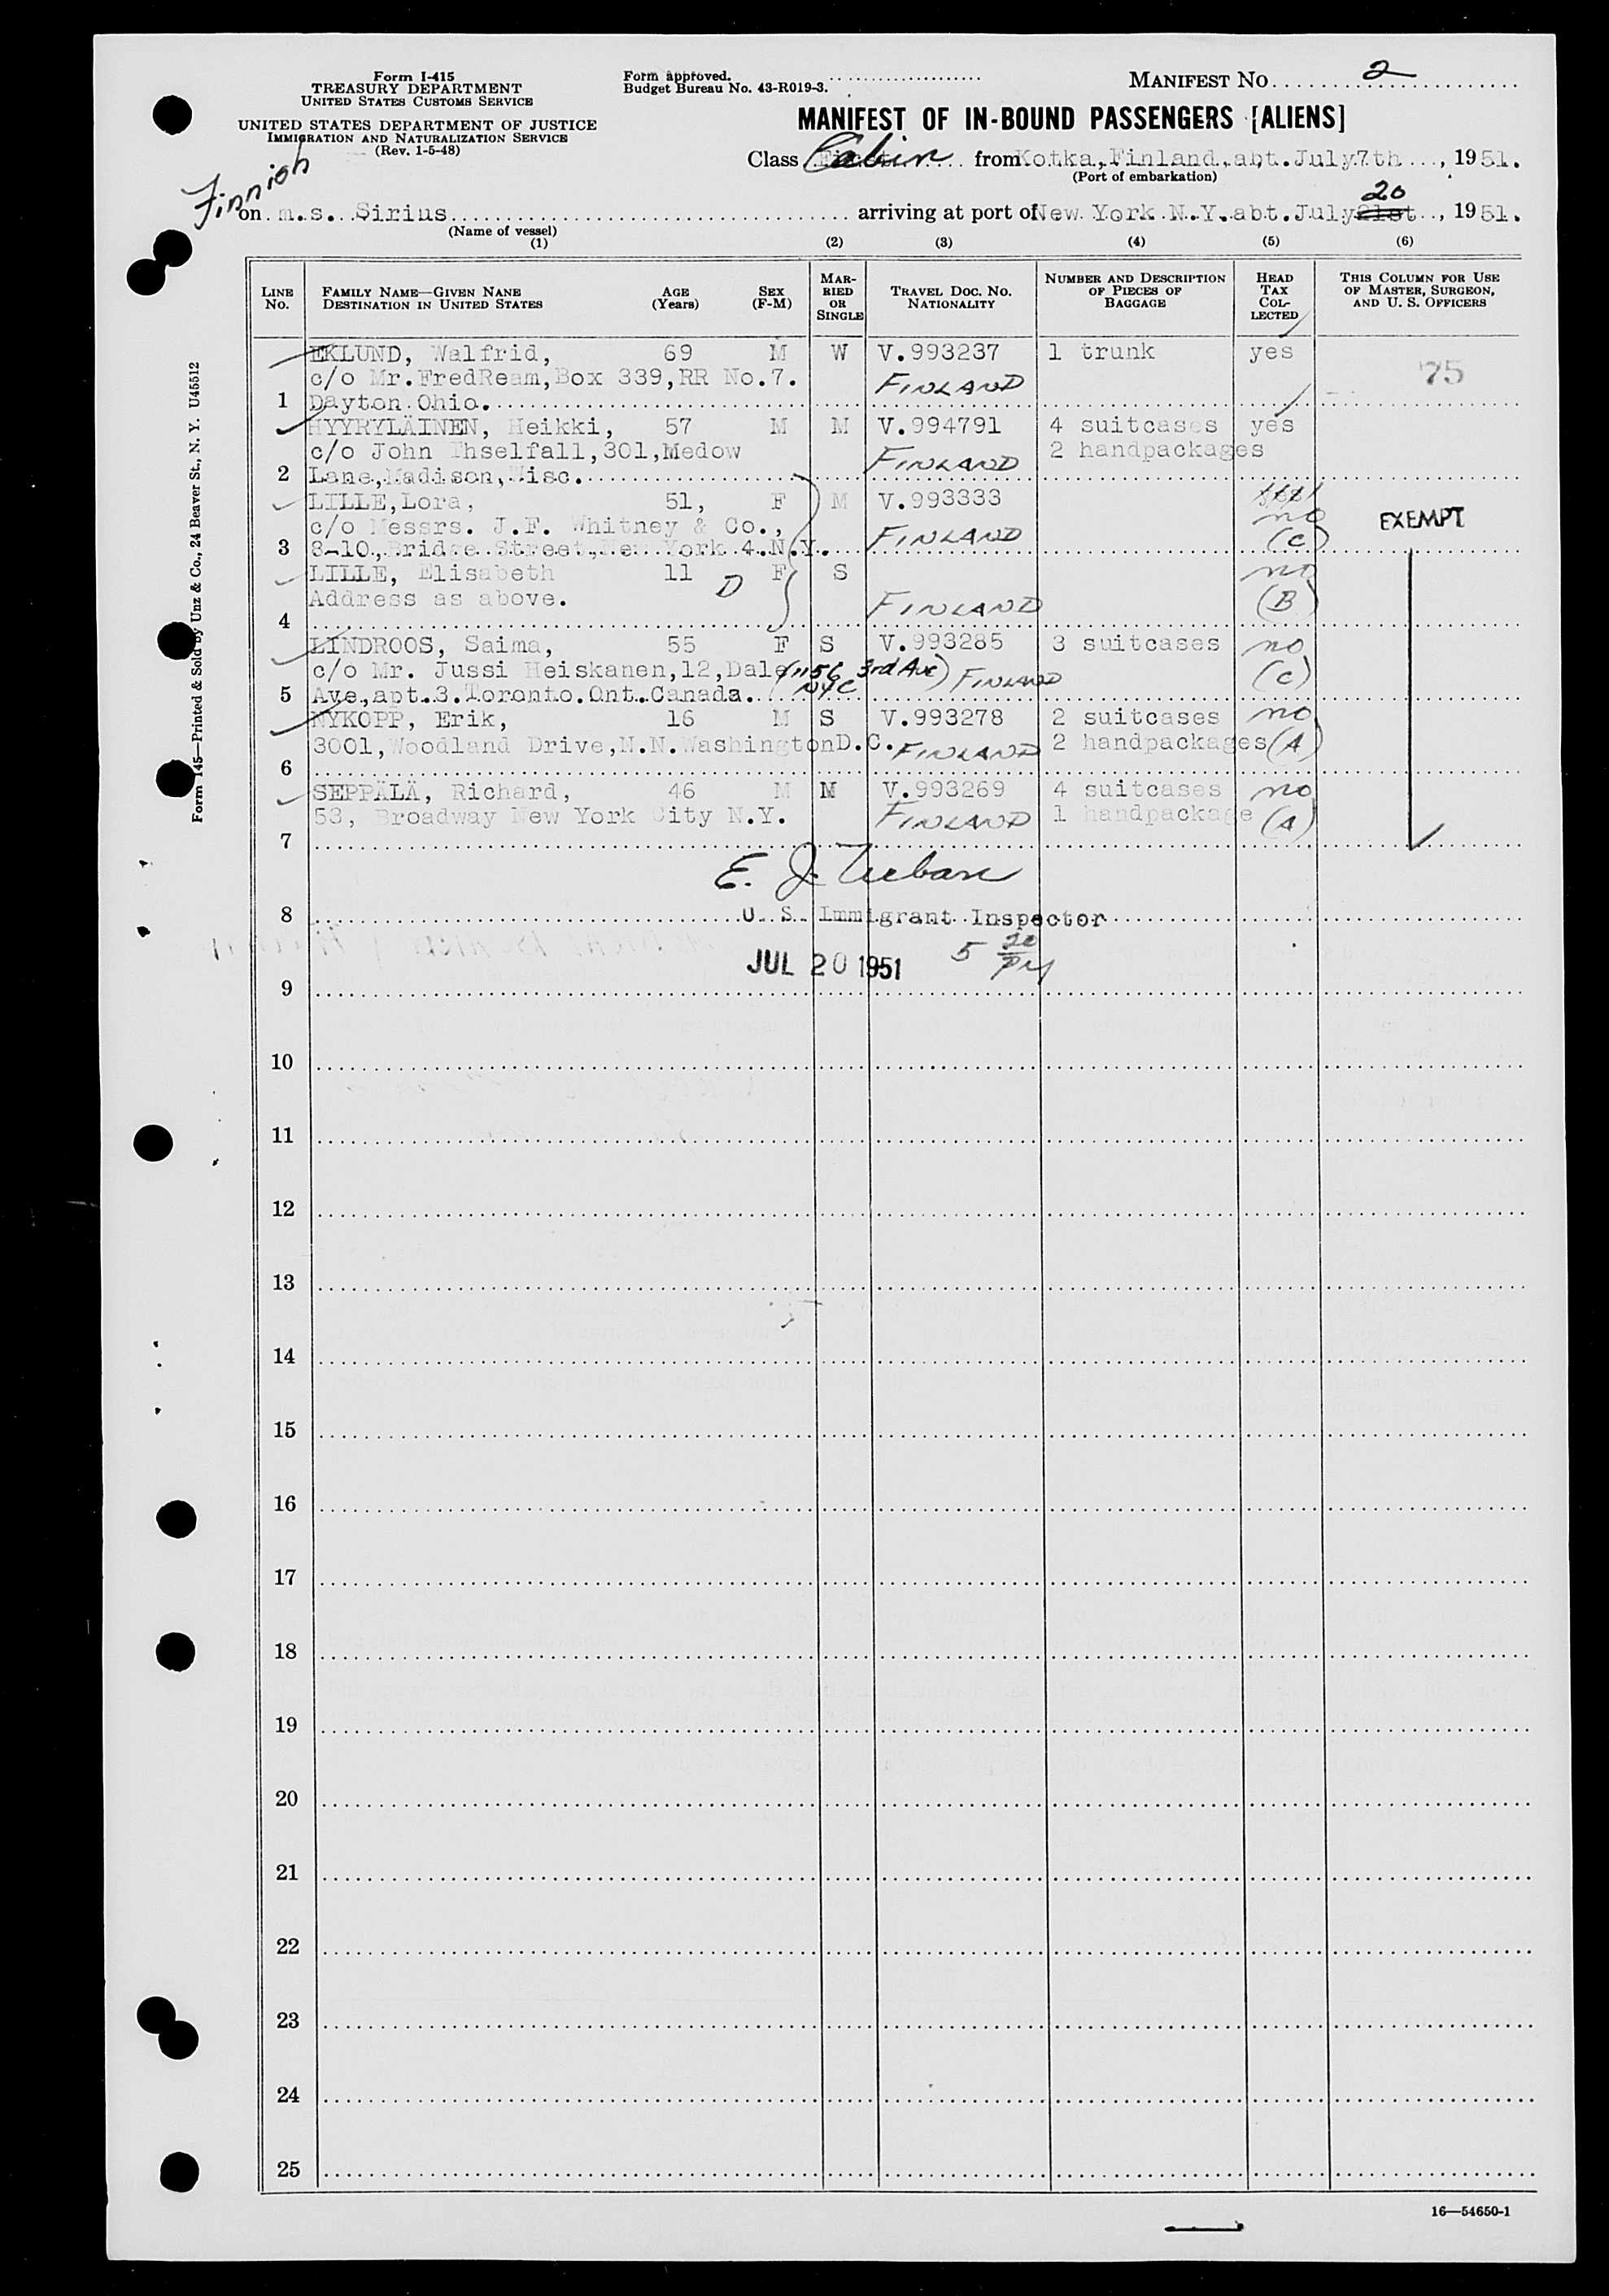 Form I-415
TREASURY DEPARTMENT
UNITED STATES CUSTOMS SERVICE
UNITED STATES DEPARTMENT OF JUSTICE
IMMIGRATION AND NATURALIZATION SERVICE
(Rev. 1-5-48)
Form approved.
Budget Bureau No. 43-R019-3.
MANIFEST NO. 2
MANIFEST OF IN-BOUND PASSENGERS [ALIENS]
Class Cabin from Kotka, Finland, abt. July 7th, 1951.
(Port of embarkation)
Finnish
20
on m.s. Sirius arriving at port of New York N.Y. abt. July 21st, 1951.
(Name of vessel)
(1) (2) (3) (4) (5) (6)
LINE NO. FAMILY NAME—GIVEN NANE DESTINATION IN UNITED STATES AGE (Years) SEX (F-M) MARRIED OR SINGLE TRAVEL DOC. NO. NATIONALITY NUMBER AND DESCRIPTION OF PIECES OF BAGGAGE HEAD TAX COLLECTED THIS COLUMN FOR USE OF MASTER, SURGEON, AND U. S. OFFICERS
EKLUND, Walfrid, 69 M W V.993237 1 trunk yes 75
c/o Mr.FredReam,Box 339,RR No.7. FINLAND
1 Dayton Ohio.
HYYRYLÄINEN, Heikki, 57 M M V.994791 4 suitcases yes
c/o John Thselfall,301,Medow FINLAND 2 handpackages
2 Lane,Madison,Wisc.
LILLE,Lora, 51, F M V.993333 no EXEMPT
c/o Messrs. J.F. Whitney & Co., FINLAND (C)
3 8-10,Bridge Street,New York 4.N.Y.
LILLE, Elisabeth 11 D F S no
Address as above. FINLAND (B)
4
LINDROOS, Saima, 55 F S V.993285 3 suitcases no
c/o Mr. Jussi Heiskanen,12,Dale (1156 3rd Ave) FINLAND (C)
5 Ave,apt.3.Toronto.Ont.Canada. NYC
NYKOPP, Erik, 16 M S V.993278 2 suitcases no
3001,Woodland Drive,N.N.WashingtonD.C. FINLAND 2 handpackages (A)
6
SEPPÄLÄ, Richard, 46 M M V.993269 4 suitcases no
53, Broadway New York City N.Y. FINLAND 1 handpackage (A)
7
8 U. S. Immigrant Inspector
JUL 20 1951 5 20 PM
9
10
11
12
13
14
15
16
17
18
19
20
21
22
23
24
25
16—54650-1
Form 145—Printed & Sold by Unz & Co., 24 Beaver St., N. Y. U45512